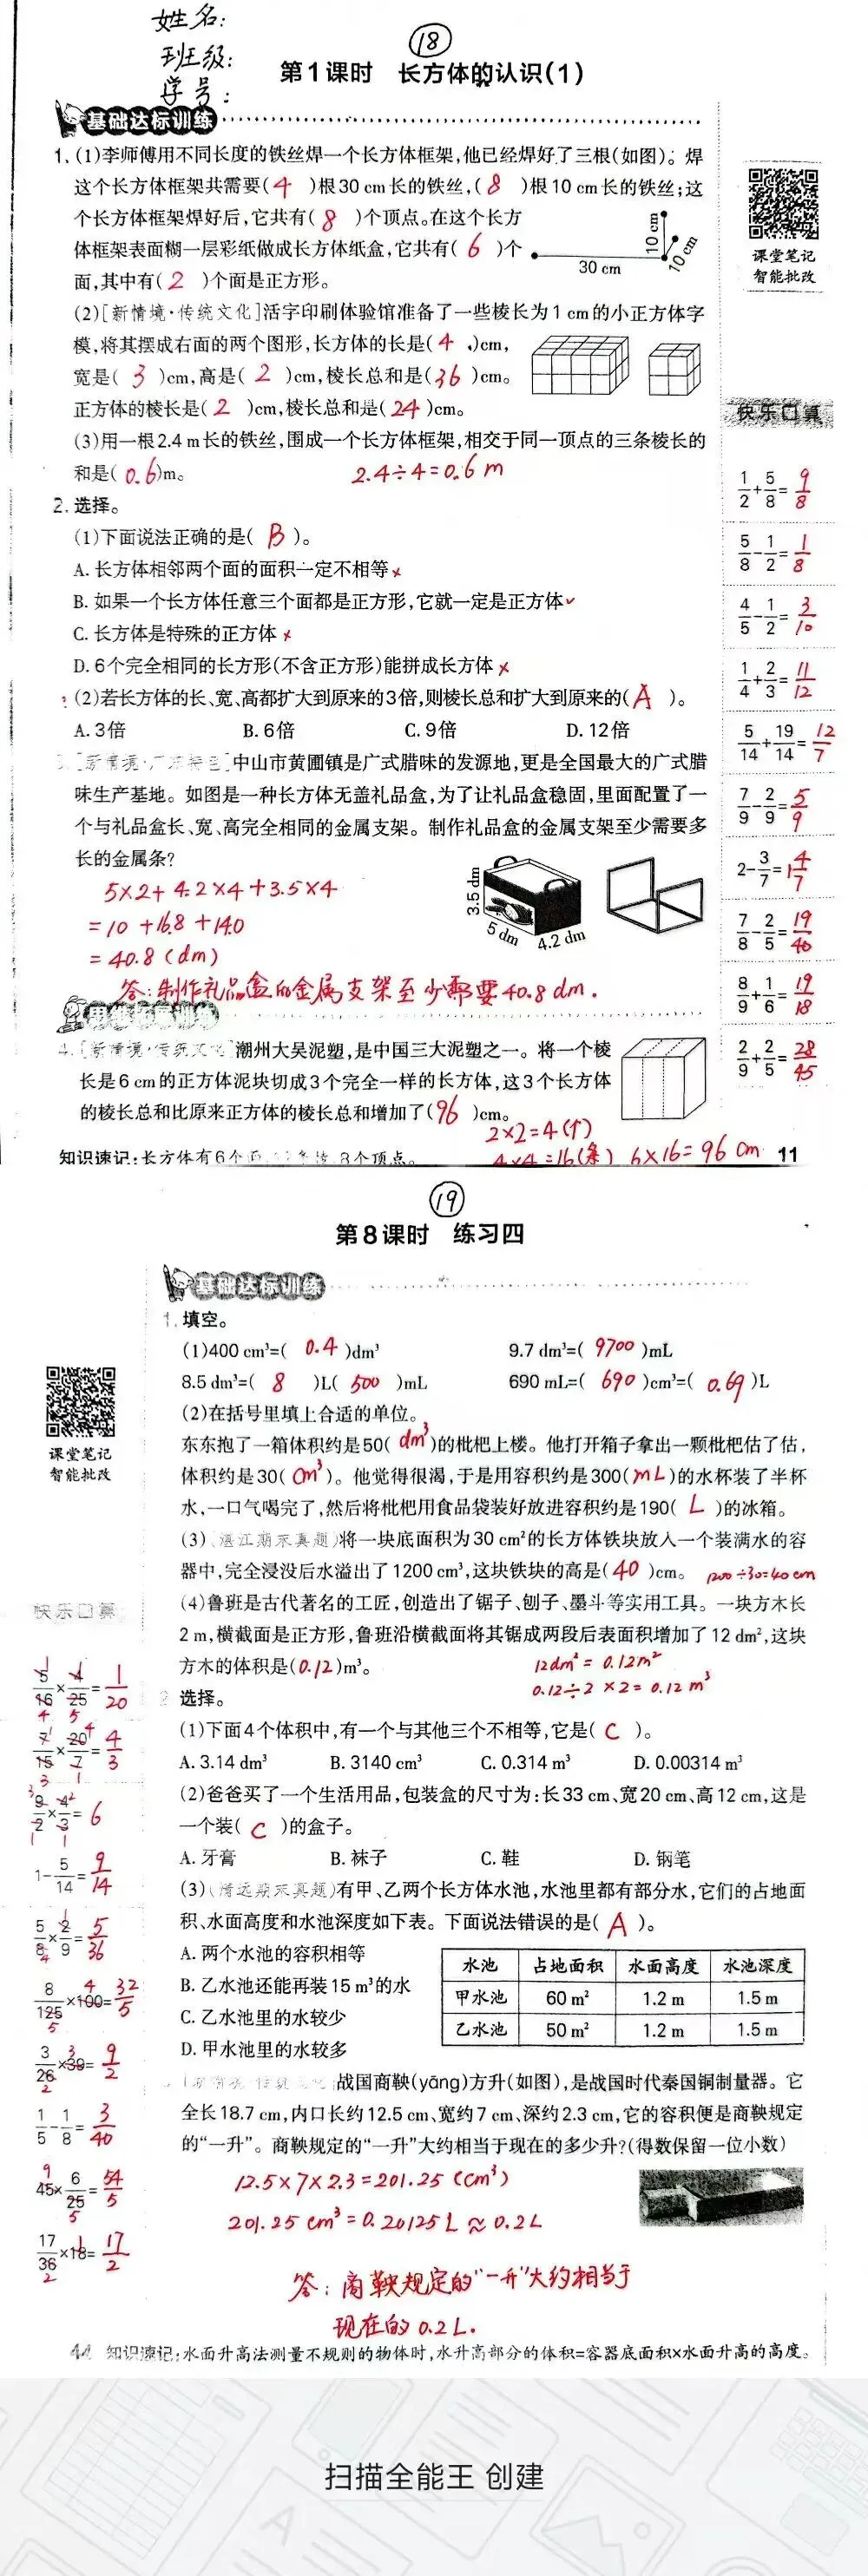 姓名:
班级:
学号:
18
第1课时 长方体的认识(1)
基础达标训练
1. (1)李师傅用不同长度的铁丝焊一个长方体框架,他已经焊好了三根(如图)。焊
这个长方体框架共需要( 4 )根30 cm长的铁丝,( 8 )根10 cm长的铁丝;这
个长方体框架焊好后,它共有( 8 )个顶点。在这个长方
体框架表面糊一层彩纸做成长方体纸盒,它共有( 6 )个
面,其中有( 2 )个面是正方形。
30 cm
10 cm
10 cm
课堂笔记
智能批改
(2)[新情境·传统文化]活字印刷体验馆准备了一些棱长为1 cm的小正方体字
模,将其摆成右面的两个图形,长方体的长是( 4 )cm,
宽是( 3 )cm,高是( 2 )cm,棱长总和是(36)cm。
正方体的棱长是( 2 )cm,棱长总和是(24)cm。
(3)用一根2.4 m长的铁丝,围成一个长方体框架,相交于同一顶点的三条棱长的
和是(0.6)m。 2.4÷4=0.6 m
2. 选择。
(1)下面说法正确的是( B )。
A. 长方体相邻两个面的面积一定不相等 ×
B. 如果一个长方体任意三个面都是正方形,它就一定是正方体 ✓
C. 长方体是特殊的正方体 ×
D. 6个完全相同的长方形(不含正方形)能拼成长方体 ×
(2)若长方体的长、宽、高都扩大到原来的3倍,则棱长总和扩大到原来的( A )。
A. 3倍 B. 6倍 C. 9倍 D. 12倍
3. [新情境·广东特色]中山市黄圃镇是广式腊味的发源地,更是全国最大的广式腊
味生产基地。如图是一种长方体无盖礼品盒,为了让礼品盒稳固,里面配置了一
个与礼品盒长、宽、高完全相同的金属支架。制作礼品盒的金属支架至少需要多
长的金属条?
5×2+4.2×4+3.5×4
=10+16.8+14.0
=40.8(dm)
答:制作礼品盒的金属支架至少需要40.8dm.
3.5 dm
5 dm
4.2 dm
思维拓展训练
4. [新情境·传统文化]潮州大吴泥塑,是中国三大泥塑之一。将一个棱
长是6 cm的正方体泥块切成3个完全一样的长方体,这3个长方体
的棱长总和比原来正方体的棱长总和增加了(96)cm。
2×2=4(个)
4×4=16(条) 6×16=96 cm
知识速记:长方体有6个面 8个顶点。
11
快乐口算
1/2+5/8=9/8
5/8-1/2=1/8
4/5-1/2=3/10
1/4+2/3=11/12
5/14+19/14=12/7
7/9-2/9=5/9
2-3/7=1 4/7
7/8-2/5=19/40
8/9+1/6=19/18
2/9+2/5=28/45
19
第8课时 练习四
基础达标训练
1. 填空。
(1)400 cm³=( 0.4 )dm³ 9.7 dm³=( 9700 )mL
8.5 dm³=( 8 )L( 500 )mL 690 mL=( 690 )cm³=( 0.69 )L
(2)在括号里填上合适的单位。
东东抱了一箱体积约是50( dm³ )的枇杷上楼。他打开箱子拿出一颗枇杷估了估,
体积约是30( cm³ )。他觉得很渴,于是用容积约是300( mL )的水杯装了半杯
水,一口气喝完了,然后将枇杷用食品袋装好放进容积约是190( L )的冰箱。
(3)(湛江期末真题)将一块底面积为30 cm²的长方体铁块放入一个装满水的容
器中,完全浸没后水溢出了1200 cm³,这块铁块的高是( 40 )cm。 1200÷30=40 cm
(4)鲁班是古代著名的工匠,创造出了锯子、刨子、墨斗等实用工具。一块方木长
2 m,横截面是正方形,鲁班沿横截面将其锯成两段后表面积增加了12 dm²,这块
方木的体积是(0.12)m³。
12dm²=0.12m²
0.12÷2×2=0.12 m³
2. 选择。
(1)下面4个体积中,有一个与其他三个不相等,它是( C )。
A. 3.14 dm³ B. 3140 cm³ C. 0.314 m³ D. 0.00314 m³
(2)爸爸买了一个生活用品,包装盒的尺寸为:长33 cm、宽20 cm、高12 cm,这是
一个装( C )的盒子。
A. 牙膏 B. 袜子 C. 鞋 D. 钢笔
(3)(清远期末真题)有甲、乙两个长方体水池,水池里都有部分水,它们的占地面
积、水面高度和水池深度如下表。下面说法错误的是( A )。
A. 两个水池的容积相等
B. 乙水池还能再装15 m³的水
C. 乙水池里的水较少
D. 甲水池里的水较多
水池 占地面积 水面高度 水池深度
甲水池 60 m² 1.2 m 1.5 m
乙水池 50 m² 1.2 m 1.5 m
战国商鞅(yāng)方升(如图),是战国时代秦国铜制量器。它
全长18.7 cm,内口长约12.5 cm、宽约7 cm、深约2.3 cm,它的容积便是商鞅规定
的“一升”。商鞅规定的“一升”大约相当于现在的多少升?(得数保留一位小数)
12.5×7×2.3=201.25(cm³)
201.25cm³=0.20125L≈0.2L
答:商鞅规定的“一升”大约相当于
现在的0.2L.
课堂笔记
智能批改
快乐口算
5/16×4/25=1/20
7/15×20/7=4/3
9/2×4/3=6
1-5/14=9/14
5/8×2/9=5/36
8/125×100=32/5
3/26×39=9/2
1/5-1/8=3/40
45×6/25=54/5
17/36×18=17/2
44 知识速记:水面升高法测量不规则的物体时,水升高部分的体积=容器底面积×水面升高的高度。
扫描全能王 创建